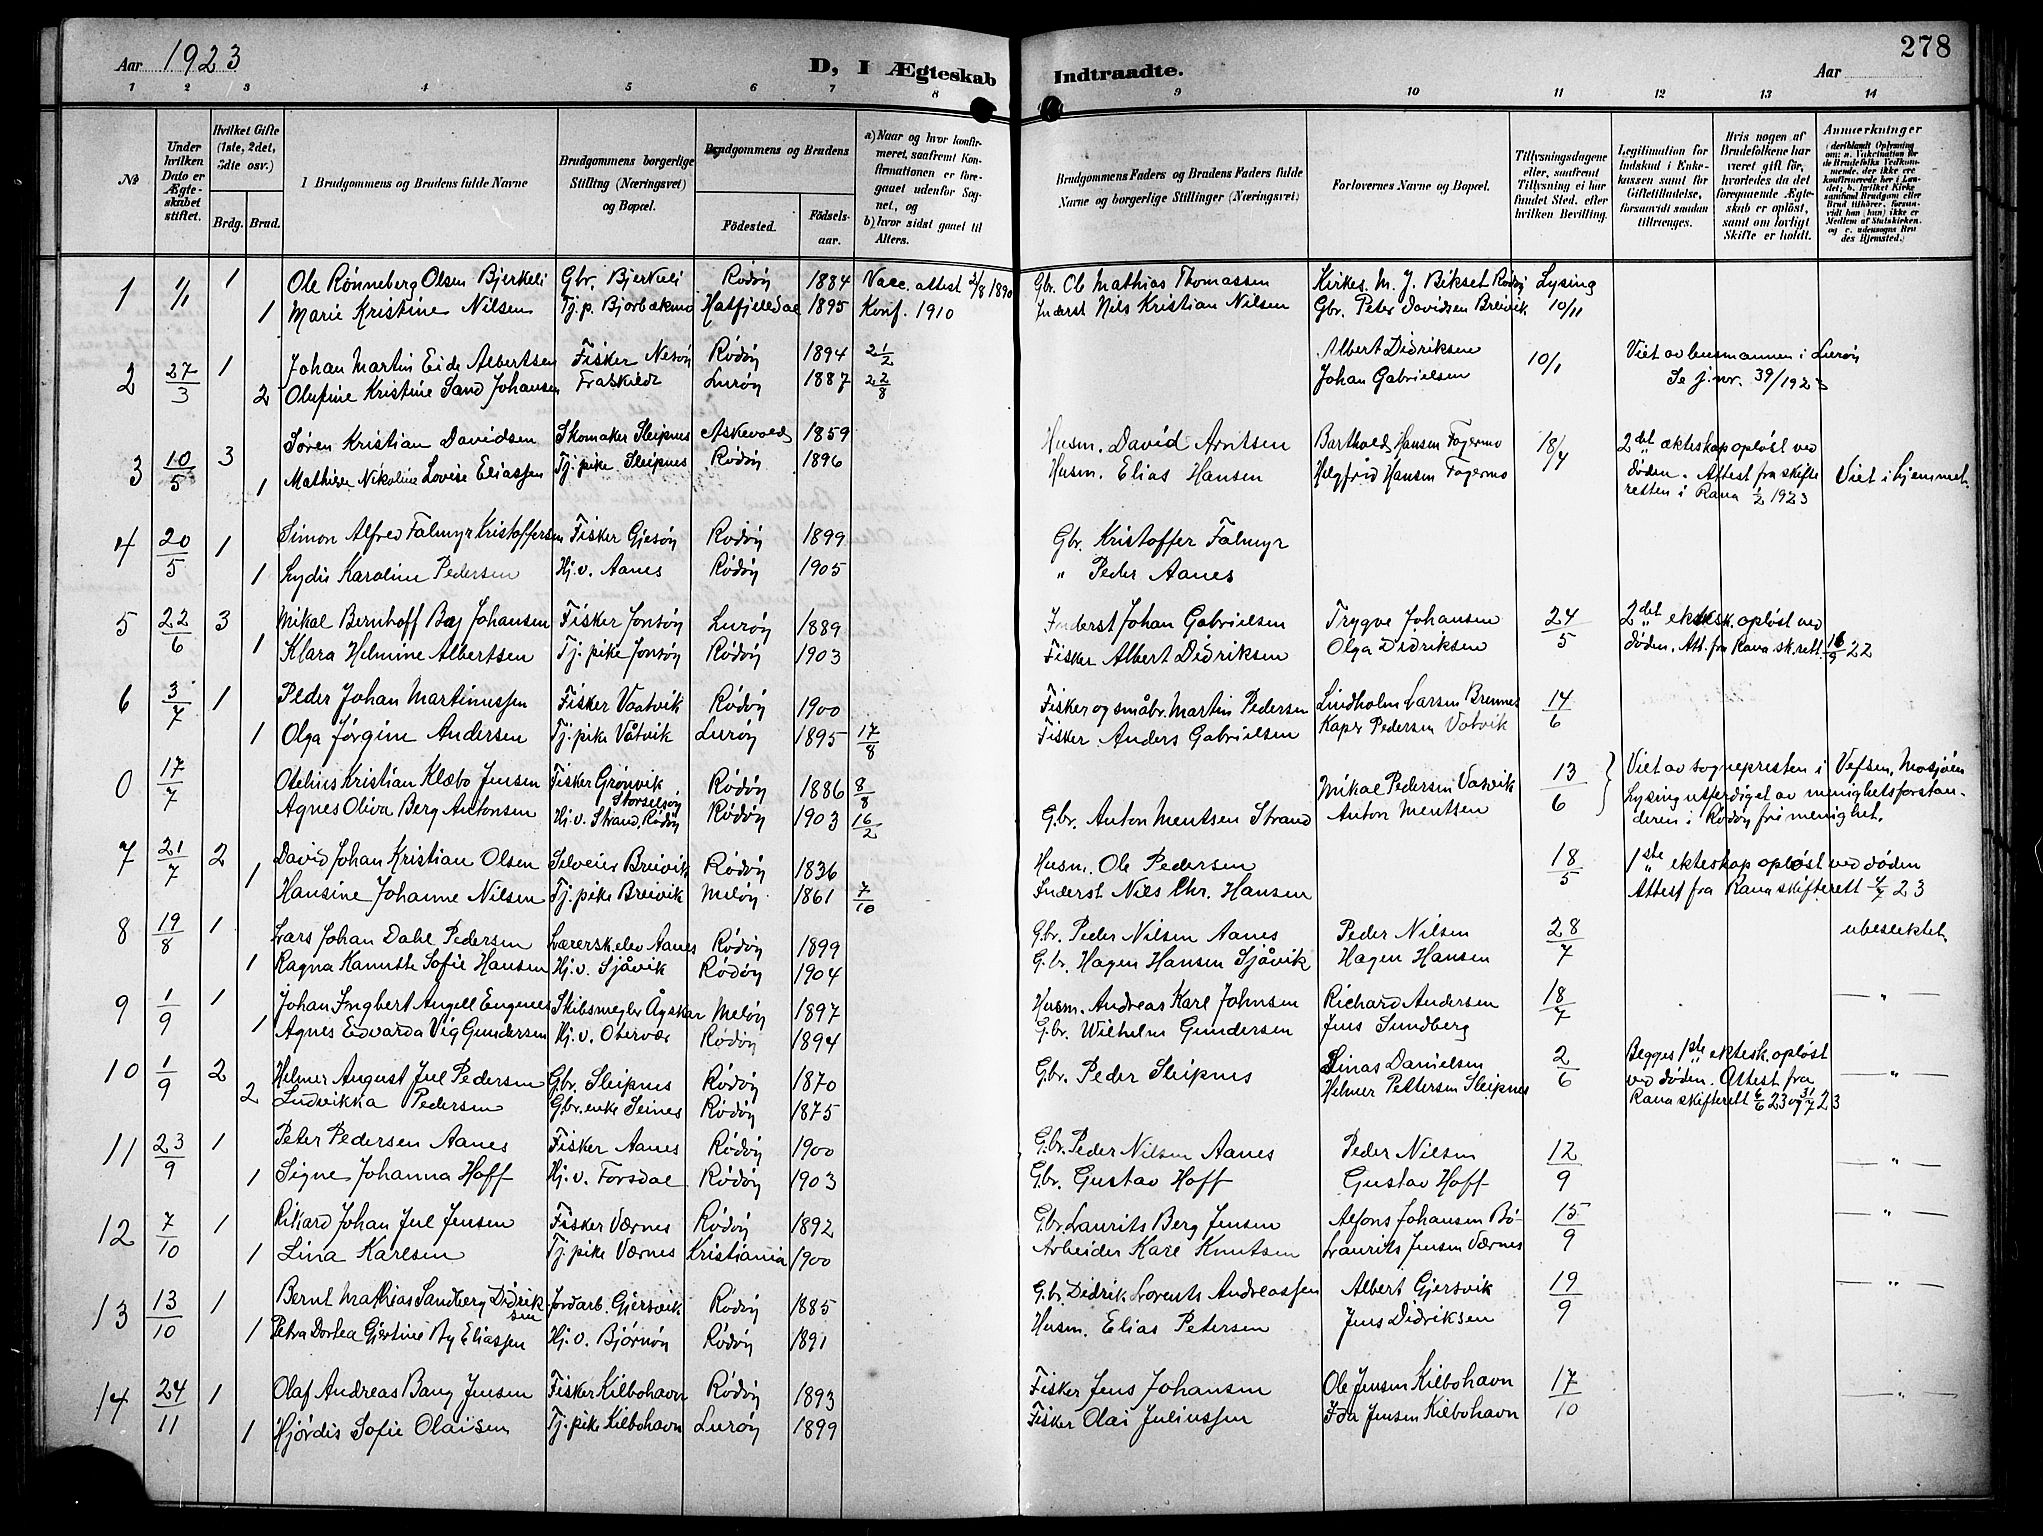 Aar 1923
D, I Ægteskab Indtraadte.
Aar
278
1 2 3 4 5 6 7 8 9 10 11 12 13 14
№
Under hvilken Dato er Ægteskabet stiftet.
Hvilket Gifte (1ste, 2det, 3die osv.)
Brdg. Brud.
Brudgommens og Brudens fulde Navne
Brudgommens borgerlige Stilling (Næringsvei) og Bopæl.
Brudgommens og Brudens
Födested. Födselsaar.
a) Naar og hvor konfirmeret, saafremt Konfirmationen er foregaaet udenfor Sognet, og
b) hvor sidst gaaet til Alters.
Brudgommens Faders og Brudens Faders fulde Navne og borgerlige Stillinger (Næringsvei)
Forlovernes Navne og Bopæl.
Tillysningsdagene eller, saafremt Tillysning ei har fundet Sted, efter hvilken Bevilling.
Legitimation for Indskud i Enkekassen samt for Giftetilladelse, forsaavidt saadan tiltrænges.
Hvis nogen af Brudefolkene har været gift før, hvorledes da det foregaaende Ægteskab er opløst, samt om lovligt Skifte er holdt.
Anmærkninger
1 1/1 1 Ole Rønneberg Olsen Bjerkeli Gbr. Bjerkeli Rödöy 1884 Vacc. attest 2/8 1890 Gbr. Ole Mathias Thomassen Kirkes. M. J. Bikset Rödöy Lysing
1 Marie Kristine Nilsen Tj.p. Bjorbækmo Hatfjelldal 1895 Konf. 1910 Inderst Nils Kristian Nilsen Gbr. Peter Davidsen Breivik 10/11
2 27/3 1 Johan Martin Eide Albertsen Fisker Nesöy Rödöy 1894 21/2 Albert Didriksen 10/1 Viet av busmannen i Luröy
2 Olufine Kristine Sand Johansen Fraskildt Luröy 1887 22/8 Johan Gabrielsen Se j.nr. 39/1923
3 10/5 3 Sören Kristian Davidsen Skomaker Sleipnes Askevold 1859 Husm. David Arntsen Barthold Hansen Fagermo 18/4 2det ekteskap oplöst ved
1 Nikoline Lovise Eliassen Tj.pike Sleipnes Rödöy 1896 Husm. Elias Hansen Helgfrid Hansen Fagermo döden. Attest fra skifteretten i Rana 1/2 1923 Viet i hjemmet.
4 20/5 1 Simon Alfred Falmyr Kristoffersen Fisker Gjesöy Rödöy 1899 Gbr. Kristoffer Falmyr
1 Lydis Karoline Pedersen Hj.v. Aanes Rödöy 1905 " Peder Aanes
5 22/6 3 Mikal Bernhoff Johansen Fisker Jonsöy Luröy 1889 Inderst Johan Gabrielsen Trygve Johansen 24/5 2det ektesk. oplöst ved
1 Klara Helmine Albertsen Tj.pike Jonsöy Rödöy 1903 Fisker Albert Didriksen Olga Didriksen döden. Att. fra Rana sk.rett. 16/9 22
6 3/7 1 Peder Johan Martinussen Fisker Vaatvik Rödöy 1900 Fisker og småbr. Martin Pedersen Lindholm Larsen Brennes 14/6
1 Olga Jörgine Andersen Tj.pike Våtvik Luröy 1895 17/8 Fisker Anders Gabrielsen Pedersen Vatvik
0 17/7 Otelius Kristian Klæbo Jensen Fisker Grönvik Storselsöy Rödöy 1886 8/8 Mikal Pedersen Vatvik 13/6 Viet av sognepresten i Vefsen, Mosjöen
Agnes Oliva Berg Antonsen Hj.v. Strand, Rödöy Rödöy 1903 16/2 Gbr. Anton Mentsen Strand Anton Mentsen Lysing utferdiget av menighetsforstanderen i Rödöy frimenighet.
7 21/7 2 David Johan Kristian Olsen Selveier Breivik Rödöy 1836 Husm. Ole Pedersen 18/5 1ste ekteskap oplöst ved döden
1 Hansine Johanne Nilsen Tj.pike Breivik Melöy 1861 7/10 Inderst Niels Chr. Hansen Attest fra Rana skifterett 4/7 23
8 19/8 1 Lars Johan Dahl Pedersen Lærersk.elev Aanes Rödöy 1899 Gbr. Peder Nilsen Aanes Peder Nilsen 28/7 ubeslektet
1 Ragna Kanutte Sofie Hansen Hj.v. Sjåvik Rödöy 1904 G.br. Hagen Hansen Sjåvik Hagen Hansen
9 1/9 1 Johan Ingbert Angell Eugenes Skibsmegler Ågskar Melöy 1897 Husm. Andreas Karl Johnsen Richard Andersen 18/7 — " —
1 Agnes Edvarda Vig Gundersen Hj.v. Otervær Rödöy 1894 G.br. Wilhelm Gundersen Jens Sundberg
10 1/9 2 Helmer August Jul Pedersen Gbr. Sleipnes Rödöy 1870 Gbr. Peder Sleipnes Linas Danielsen 2/6 Begges 1ste ektesk. oplöst
2 Ludvikka Pedersen Gbr.enke Seines Rödöy 1875 Helmer Pettersen Sleipnes ved döden. Attest fra Rana skifterett 6/6 23 og 31/7 23 — " —
11 23/9 1 Peter Pedersen Aanes Fisker Aanes Rödöy 1900 G.br. Peder Nilsen Aanes Peder Nilsen 12/9 — " —
1 Signe Johanna Hoff Hj.v. Forsdal Rödöy 1903 Gbr. Gustav Hoff Gustav Hoff
12 7/10 1 Rikard Johan Jul Jensen Fisker Værnes Rödöy 1892 Gbr. Laurits Berg Jensen Alfons Johansen Bö- 15/9 — " —
1 Lina Karlsen Tj.pike Værnes Kristiania 1900 Arbeider Karl Knutsen Laurits Jensen Værnes
13 13/10 1 Bernt Mathias Sandberg Didriksen Jordarb. Gjersvik Rödöy 1885 G.br. Didrik Lorents Andreassen Albert Gjersvik 19/9 — " —
1 Petra Dortea Gjertine By Eliassen Hj.v. Bjørnöy Rödöy 1891 Husm. Elias Petersen Jens Didriksen
14 24/11 1 Olaf Andreas Bang Jensen Fisker Kilbohavn Rödöy 1893 Fisker Jens Johansen Ole Jensen Kilbohavn 17/10 — " —
1 Hjördis Sofie Olaisen Tj.pike Kilbohavn Luröy 1899 Fisker Olai Juliussen Ida Jensen Kilbohavn